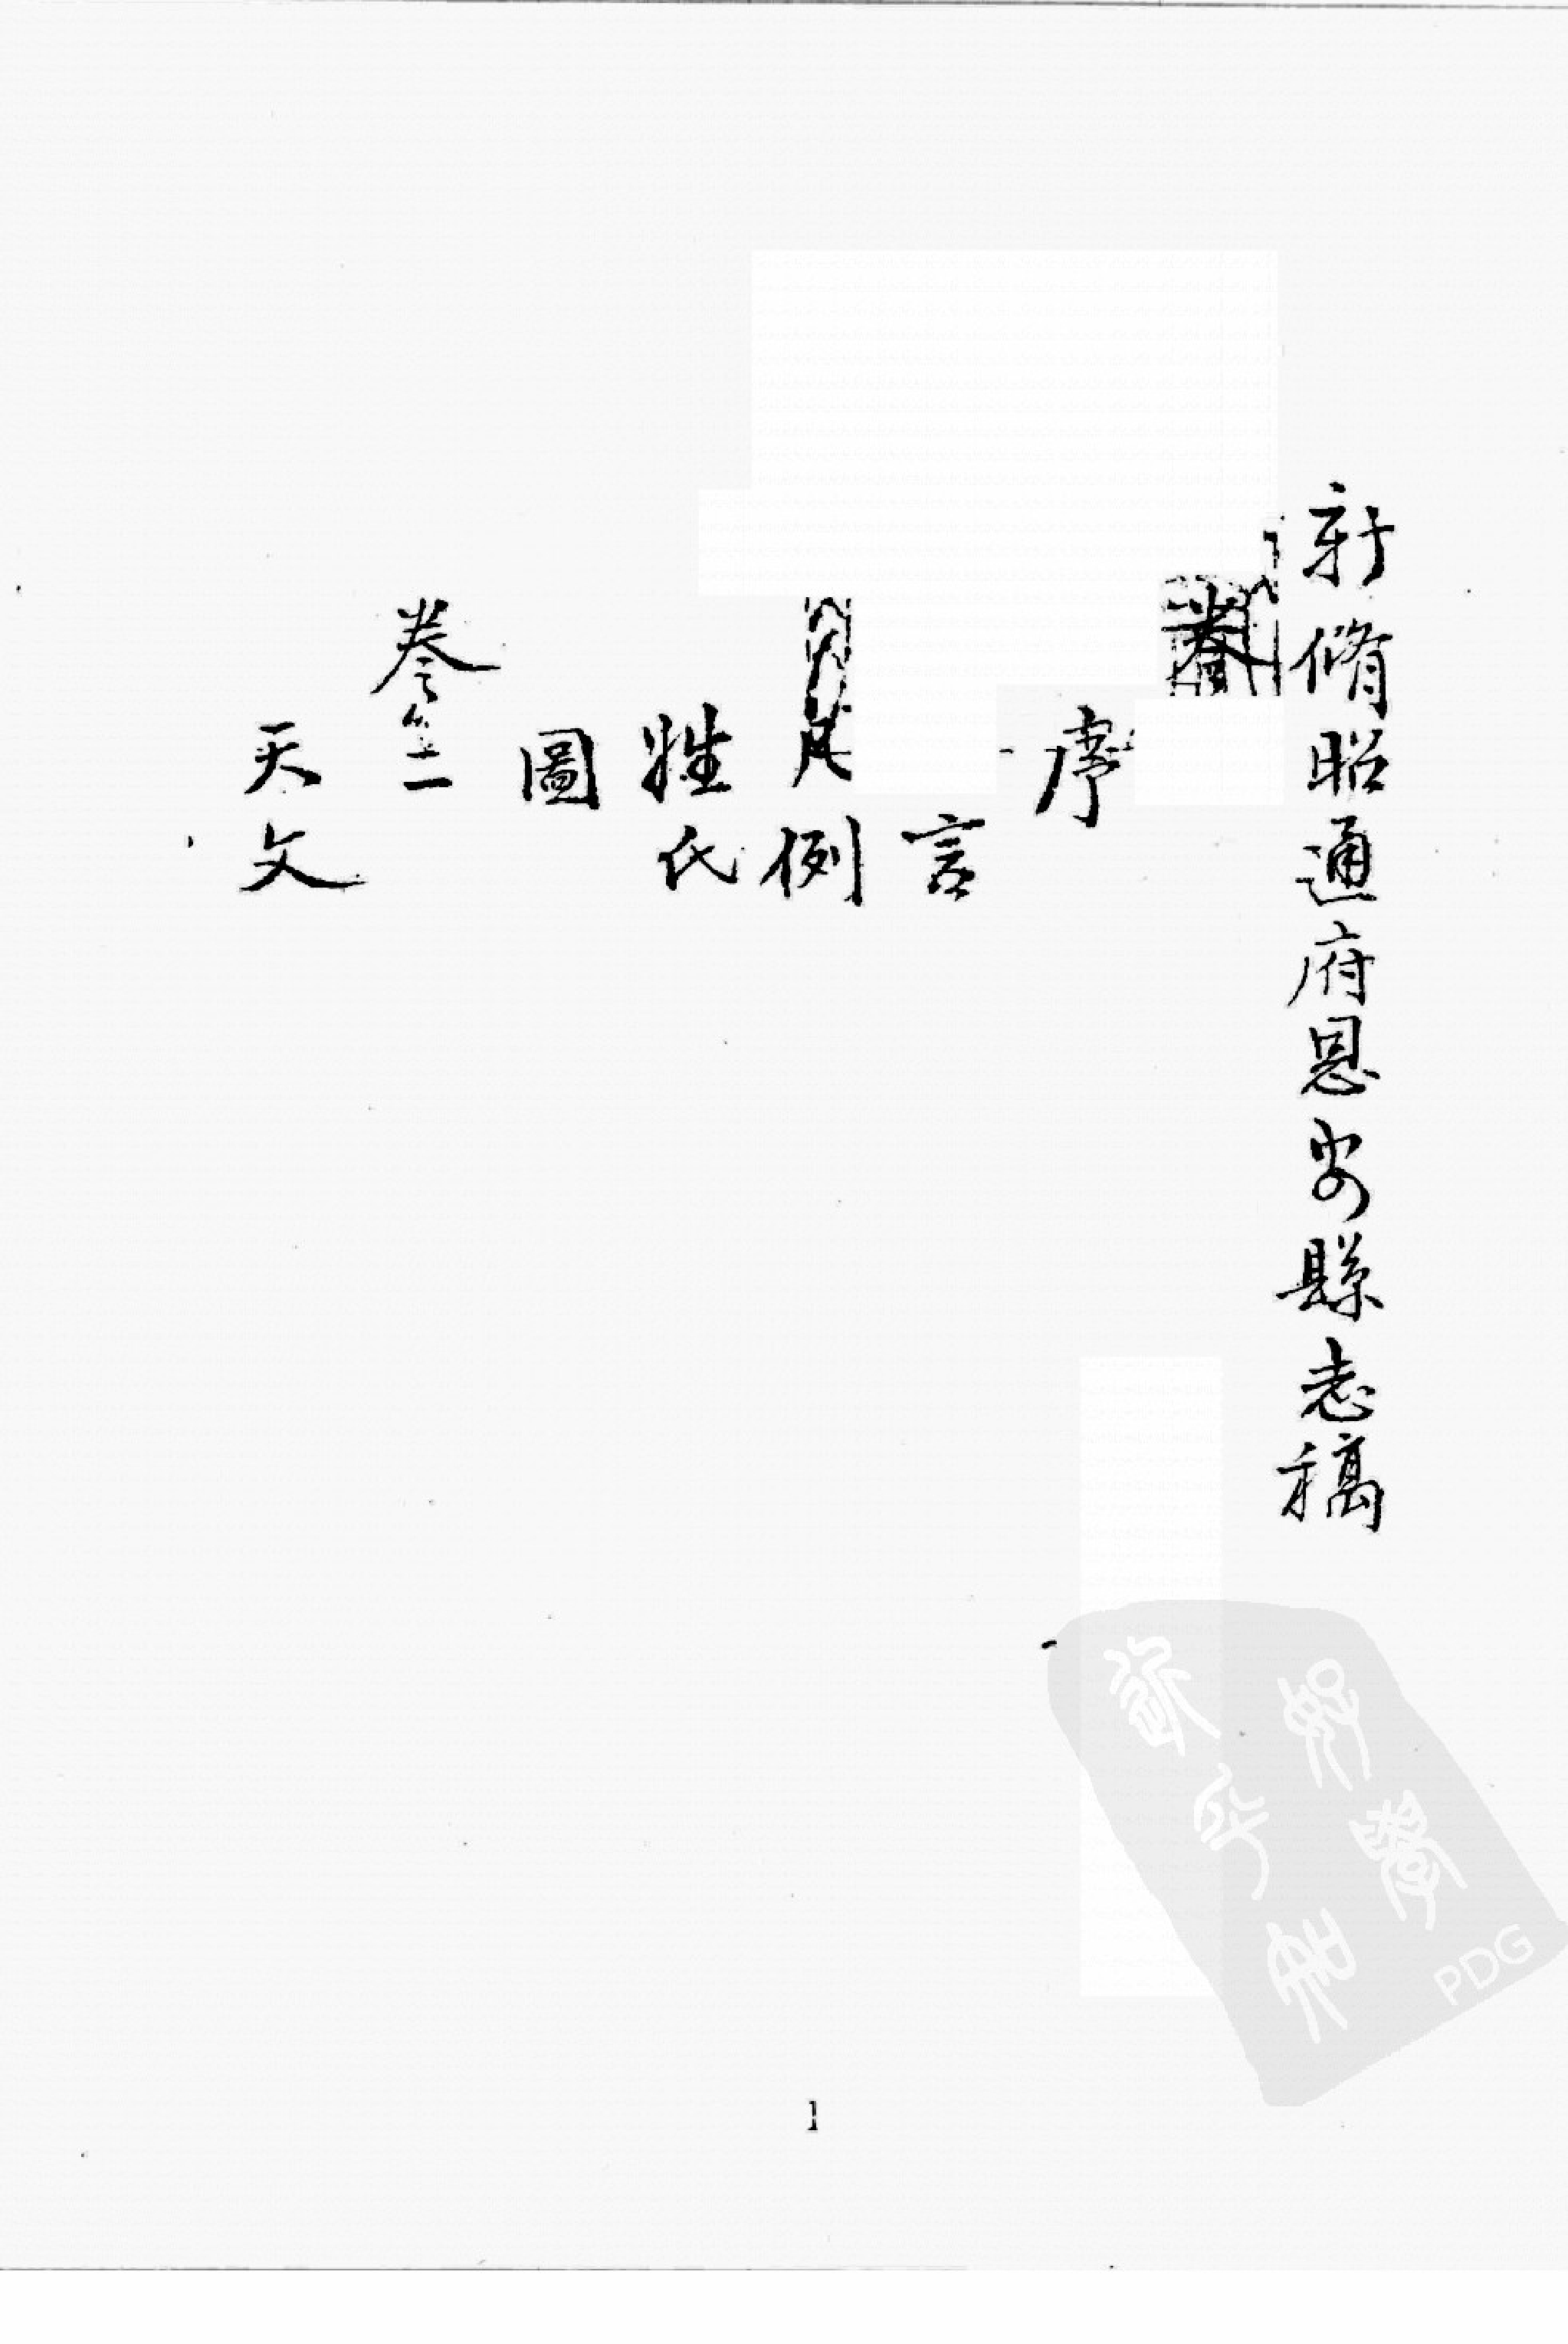 新脩昭通府恩安縣志稿
卷
序
言
凡例
姓氏
圖
卷之二
天文
1
PDG